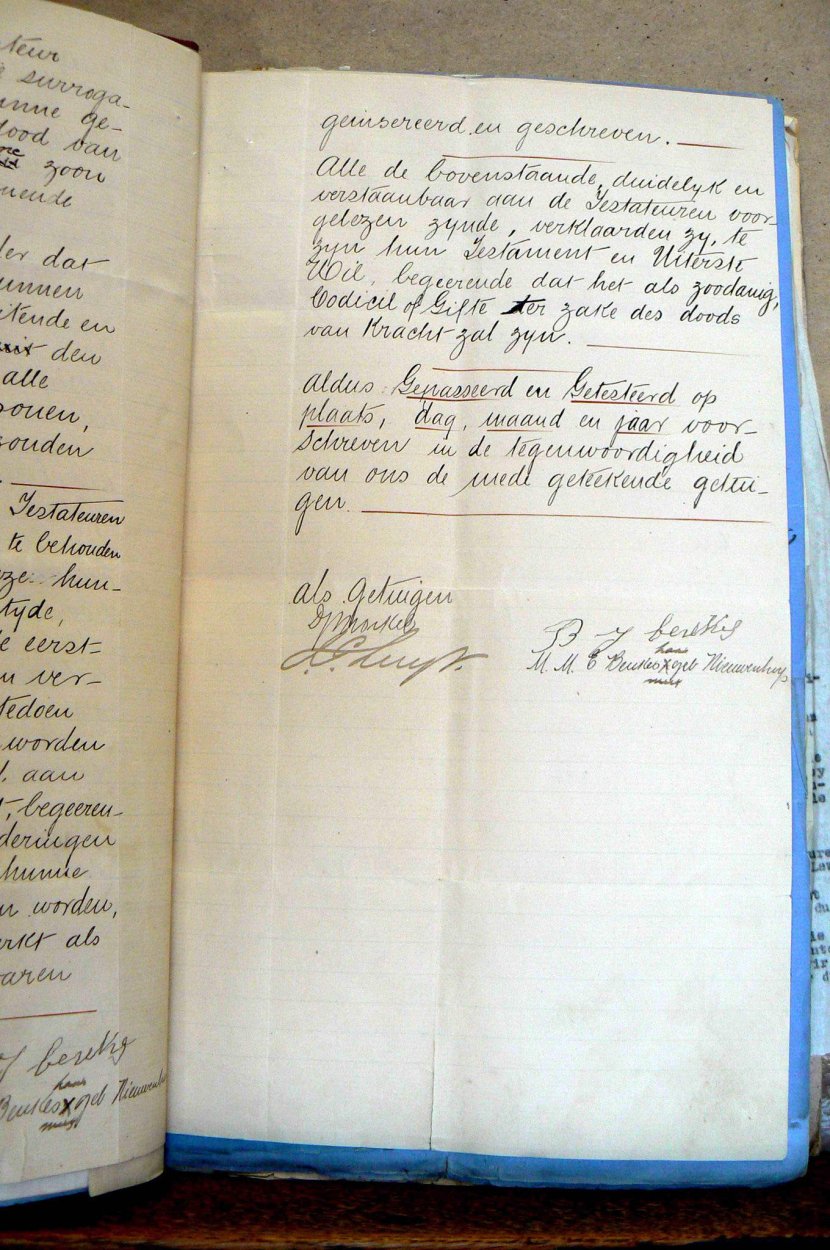 teur
surroga-
unne ge-
dood van
zoon
nende
der dat
unnen
itende en
den
alle
sonen,
zouden
Testateuren
te behouden
eze hun-
tyde,
e eerst-
n ver-
tedoen
worden
aan
begeeren-
deringen
hunne
n worden,
erkt als
varen
J beseKg
haar
Beukes X geb Nieuwenhuys
merk
geinsereerd en geschreven.
Alle de bovenstaande, duidelyk en
verstaanbaar aan de Testateuren voor-
gelezen zynde, verklaarden zy, te
zyn hun Testament en Uiterste
Wil, begeerende dat het als zoodanig,
Codicil of Gifte ter zake des doods
van Kracht zal zyn.
Aldus Gepasseerd en Getesteerd op
plaats, dag, maand en jaar voor-
schreven in de tegenwoordigheid
van ons de mede geteekende getui-
gen.
als Getuigen
B J beseKg
haar
M. M. C Beukes X geb Nieuwenhuys
merk